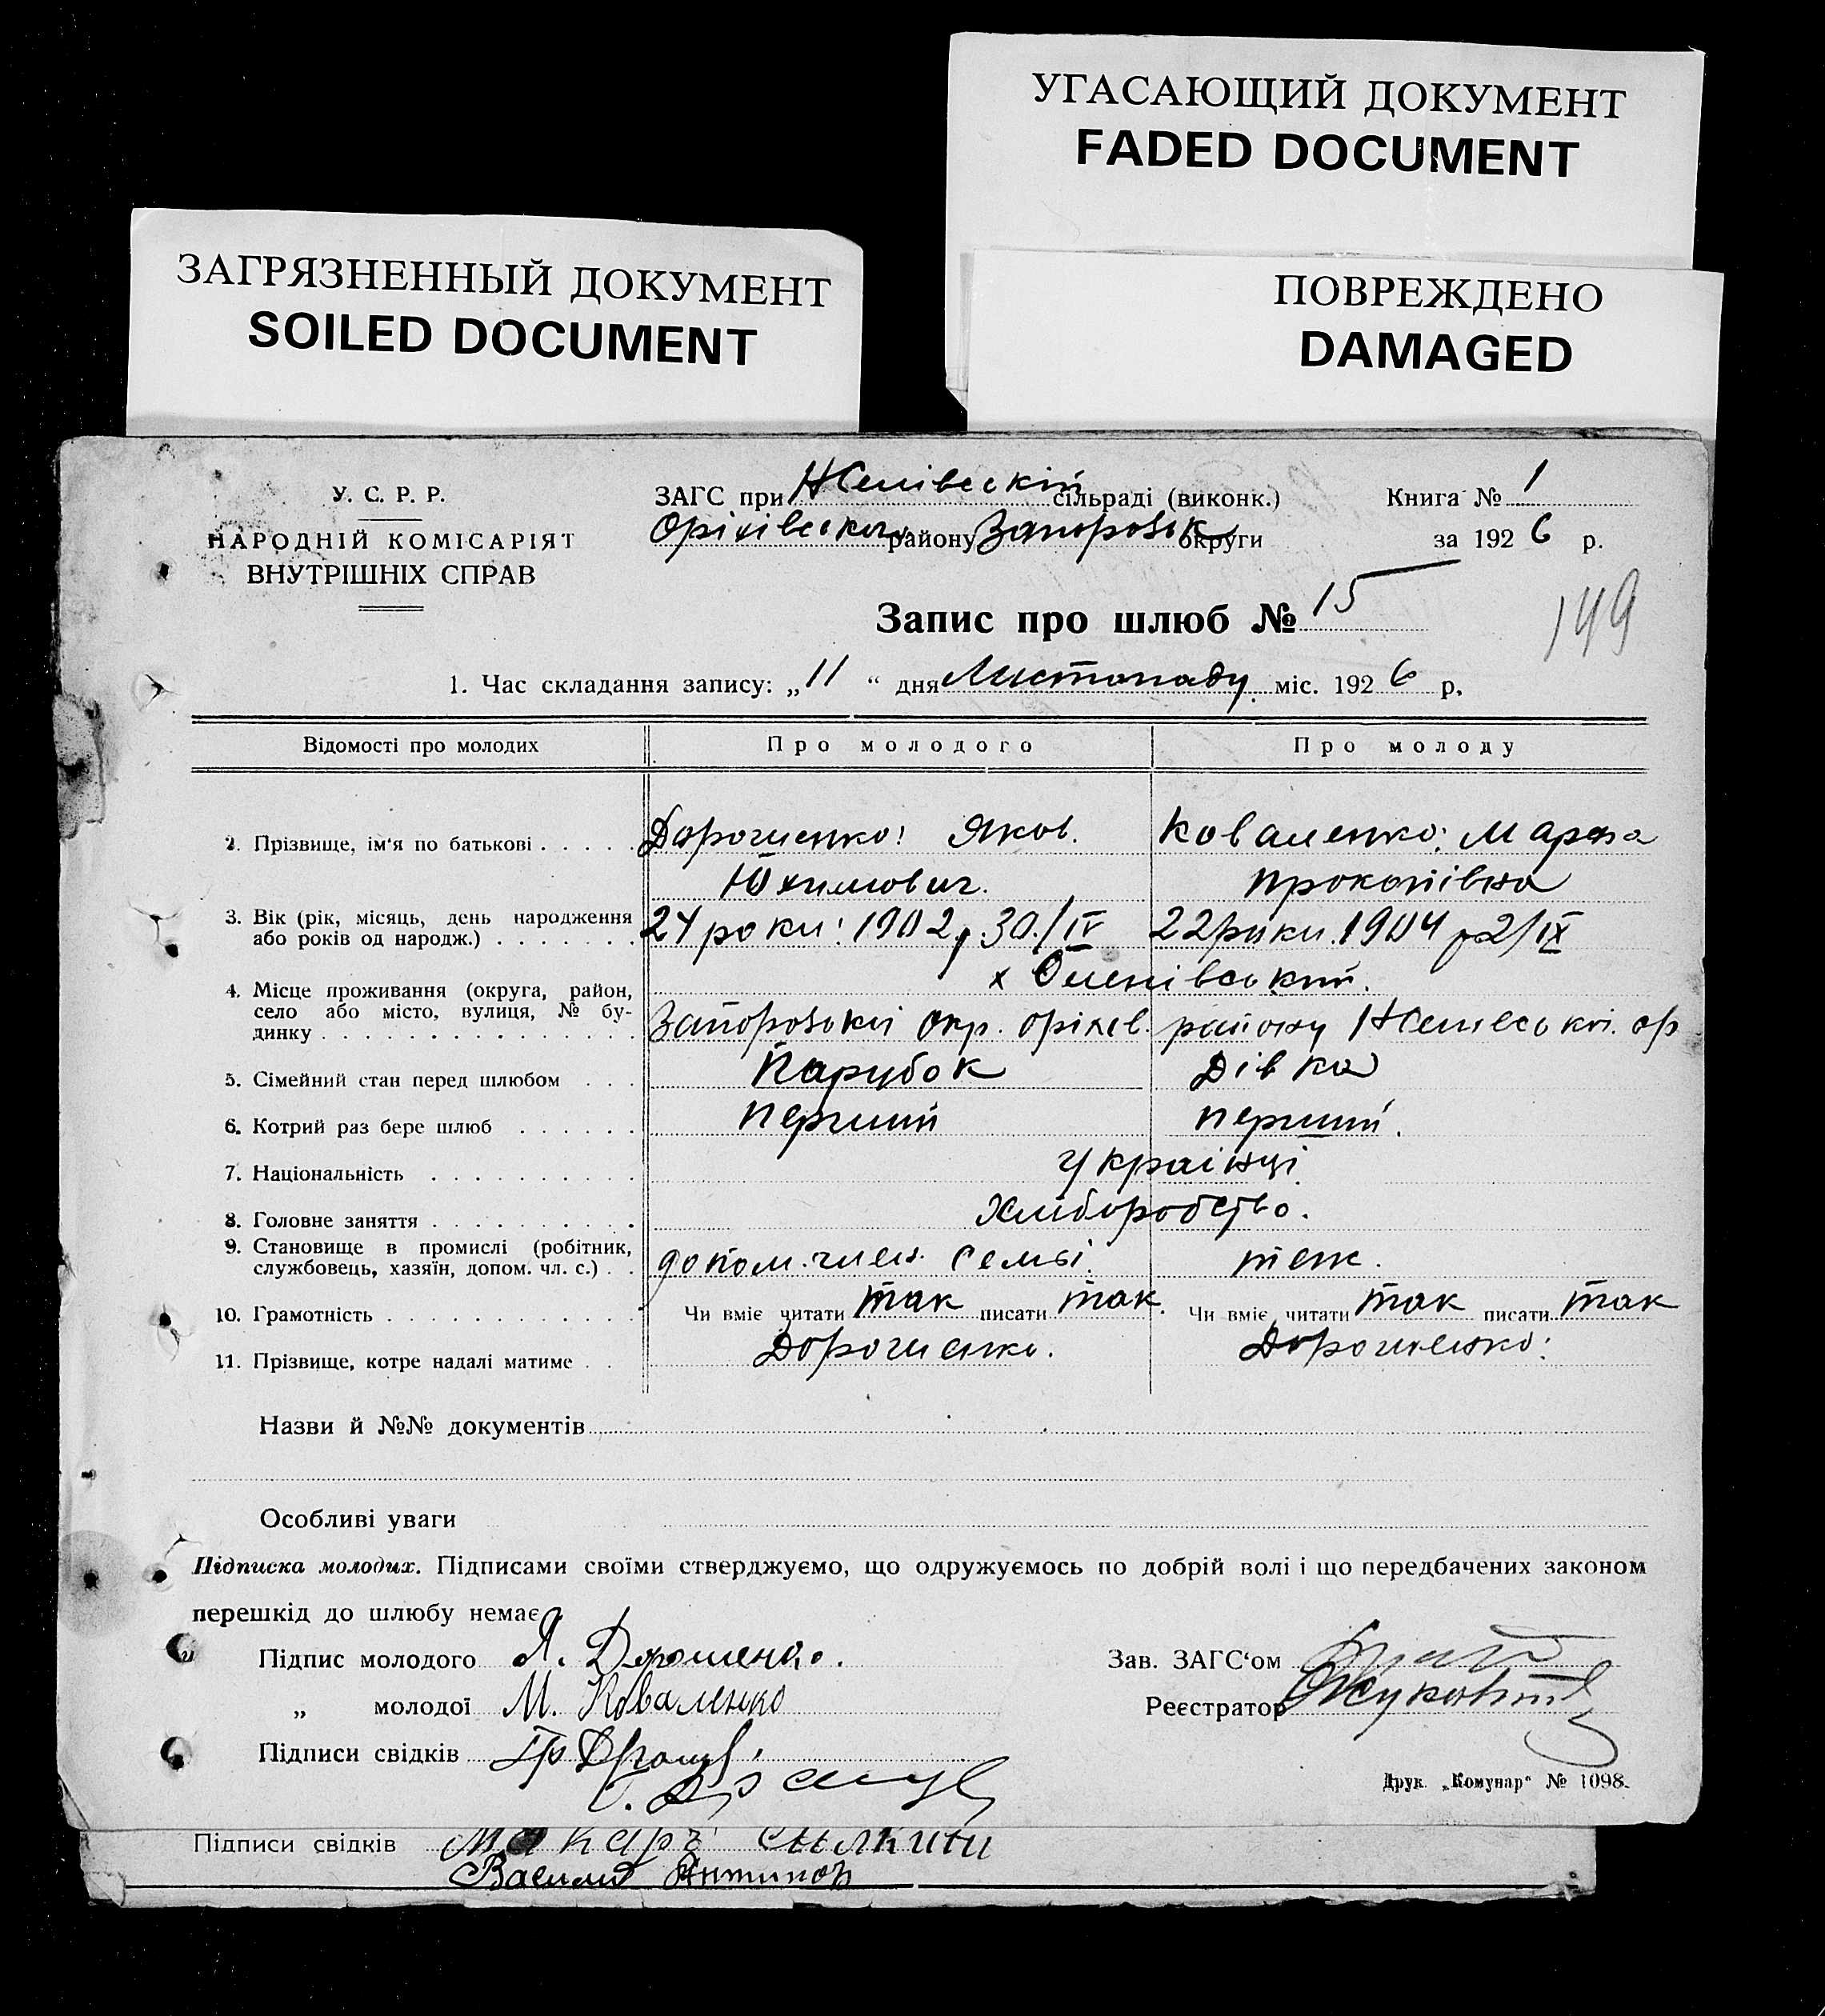 УГАСАЮЩИЙ ДОКУМЕНТ
FADED DOCUMENT
ЗАГРЯЗНЕННЫЙ ДОКУМЕНТ
SOILED DOCUMENT
ПОВРЕЖДЕНО
DAMAGED
У. С. Р. Р.
НАРОДНІЙ КОМІСАРІЯТ
ВНУТРІШНІХ СПРАВ
ЗАГС при сільраді (виконк.)
Оріхівського району Запорозьк округи
Книга № 1
за 1926 р.
Запис про шлюб № 15
149
1. Час складання запису: „11“ дня Листопаду міс. 1926 р.
Відомості про молодих Про молодого Про молоду
2. Прізвище, ім'я по батькові Дорошенко: Яков. Коваленко: Марфа
Юхимович. Прокопівна
3. Вік (рік, місяць, день народження або років од народж.) 24 роки: 1902 р. 30/IV 22 роки. 1904 р 2/IX
х Оленівський.
4. Місце проживання (округа, район, село або місто, вулиця, № будинку Запорозькій окр. оріхів. району
5. Сімейний стан перед шлюбом Парубок Дівка
6. Котрий раз бере шлюб перший перший.
7. Національність Українці
8. Головне заняття Хліборобство.
9. Становище в промислі (робітник, службовець, хазяїн, допом. чл. с.) допом. член. семьі. теж.
10. Грамотність Чи вміє читати так писати так. Чи вміє читати так писати так
11. Прізвище, котре надалі матиме Дорошенко. Дорошенко:
Назви й №№ документів
Особливі уваги
Підписка молодих. Підписами своїми стверджуємо, що одружуємось по добрій волі і що передбачених законом
перешкід до шлюбу немає
Підпис молодого Я. Дорошенко.
„ молодої М. Коваленко
Підписи свідків
Зав. ЗАГС'ом
Реєстратор
Друк. „Комунар“ № 1098.
Підписи свідків Макаръ
Василий Антипов